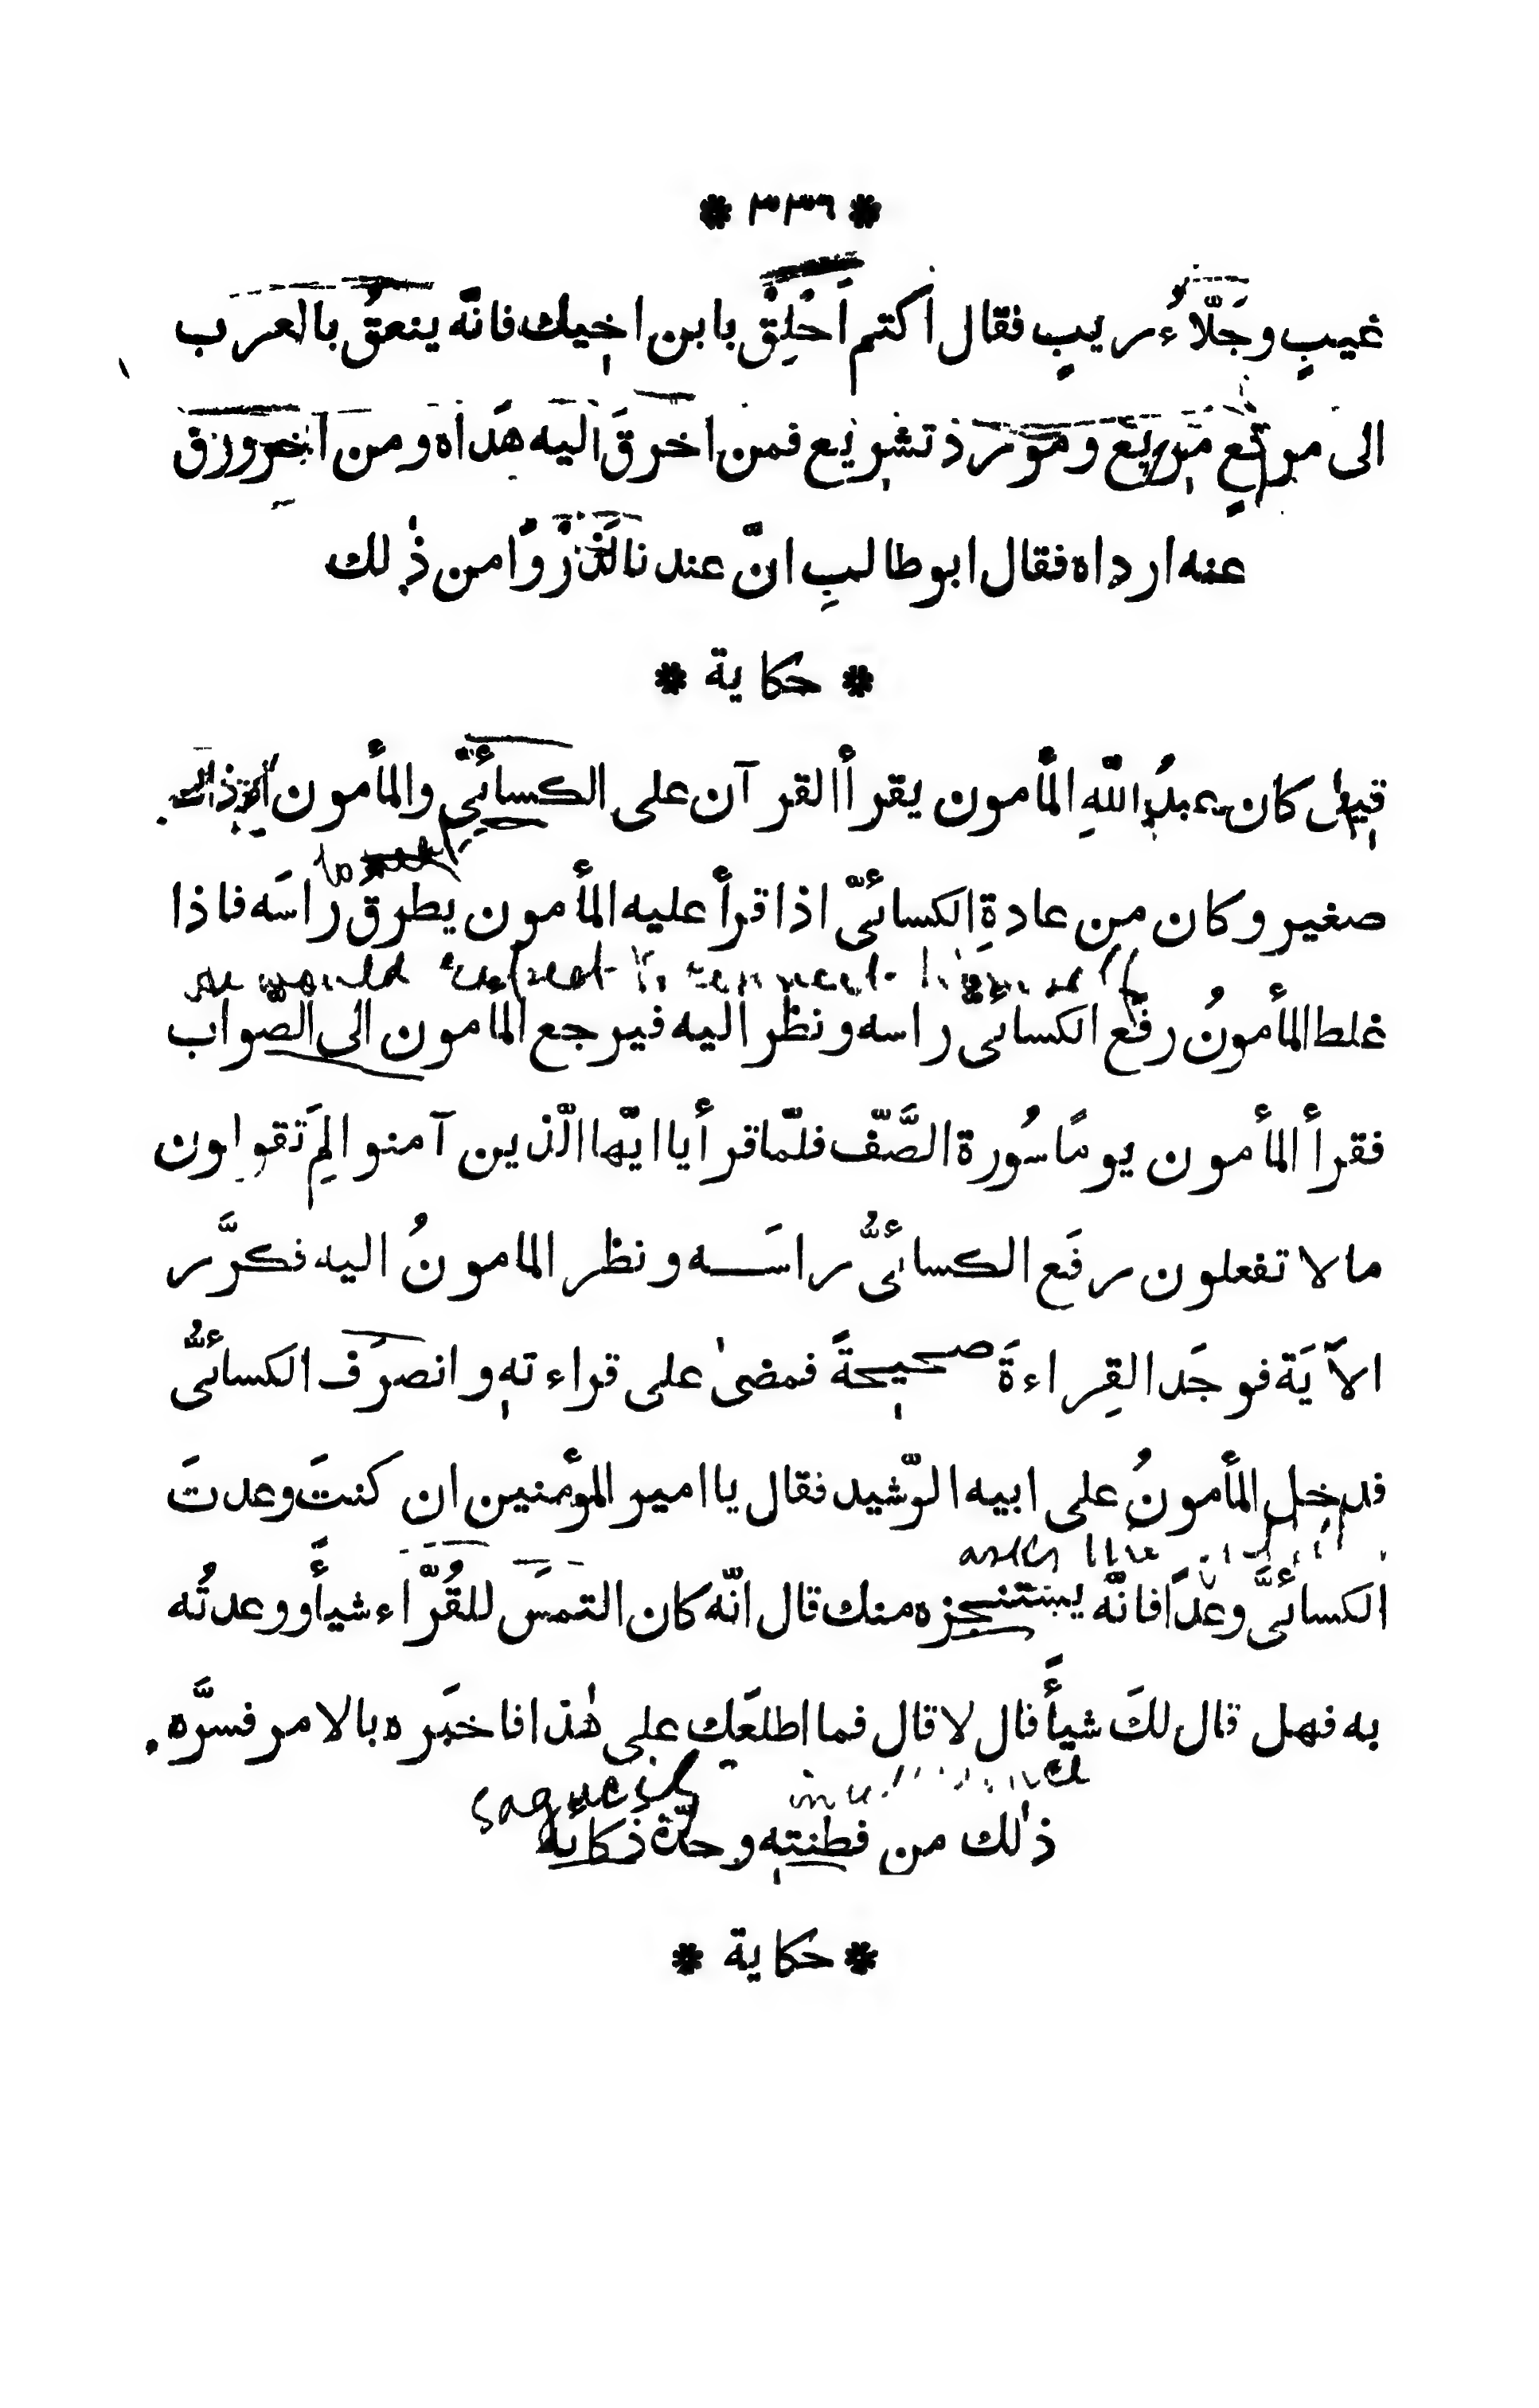 * ٣٣٦ *
غيبٍ وجَلّاءُ ريبٍ فقال اكتم اَخْلِقْ بابن اخيك فانّه ينعقُ بالعرب
الى مرتعٍ مريع وموردٍ تشريع فمن اخرقَ اليه هَداه ومن اخرورق
عنه ارداه فقال ابوطالبِ انّ عندنا لَذَرْوًا من ذٰلك
* حكاية *
قيل كان عبدُاللّٰهِ المأمون يقرأ القرآن على الكسائيّ والمأمون اذ ذاك
صغير وكان من عادةِ الكسائيّ اذا قرأ عليه المأمون يطرقُ راسَه فاذا
he would
غلط المأمونُ رفَع الكسائى راسه ونظر اليه فيرجع المأمون الى الصّواب
فقرأ المأمون يومًا سُورة الصَّفّ فلمّا قرأ يا ايّها الّذين آمنوا لِمَ تقولون
ما لا تفعلون رفَع الكسائىُّ راسَه ونظر المامونُ اليه فكرَّر
الآيَة فوجَد القِراءةَ صحيحةً فمضىٰ على قراءته وانصرَف الكسائىُّ
فدخل المأمونُ على ابيه الرّشيد فقال يا امير المؤمنين ان كنتَ وعدتَ
asks the
الكسائىَّ وعدًا فانّه يستنجزه منك قال انّه كان التمسَ للقُرّاء شيأً ووعدتُه
به فهل قال لكَ شيأً قال لا قال فما اطلعَك على هٰذا فاخبَره بالامر فسرَّه
sagacity
ذٰلك من فطنته وحدّة ذَكائه
* حكاية *